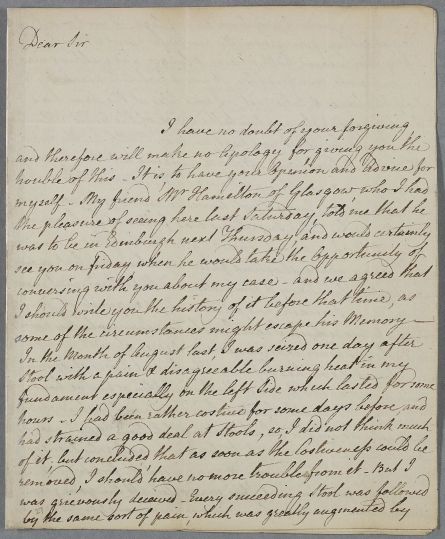 Dear Sir
I have no doubt of your forgiving
and therefore will make no Apology for giving you the
trouble of this - It is to have your Opinion and Advice for
myself - My friend Mr Hamilton of Glasgow who I had
the pleasure of seeing here last Saturday, told me that he
was to be in Edinburgh next Thursday, and would certainly
see you on friday when he would take the Opportunity of
conversing with you about my case - and we agreed that
I should write you the history of it before that time, as
some of the circumstances might escape his Memory -
In the Month of August last, I was seized one day after
Stool with a pain & disagreeable burning heat in my
fundament especially on the left Side which lasted for some
hours - I had been rather costive for some days before and
had strained a good deal at Stools, so I did not think much
of it, but concluded that as soon as the Costiveness could be
removed, I should have no more trouble from it - But I
was grievously deceived - Every succeeding Stool was followed
by the same sort of pain, which was greatly augmented by